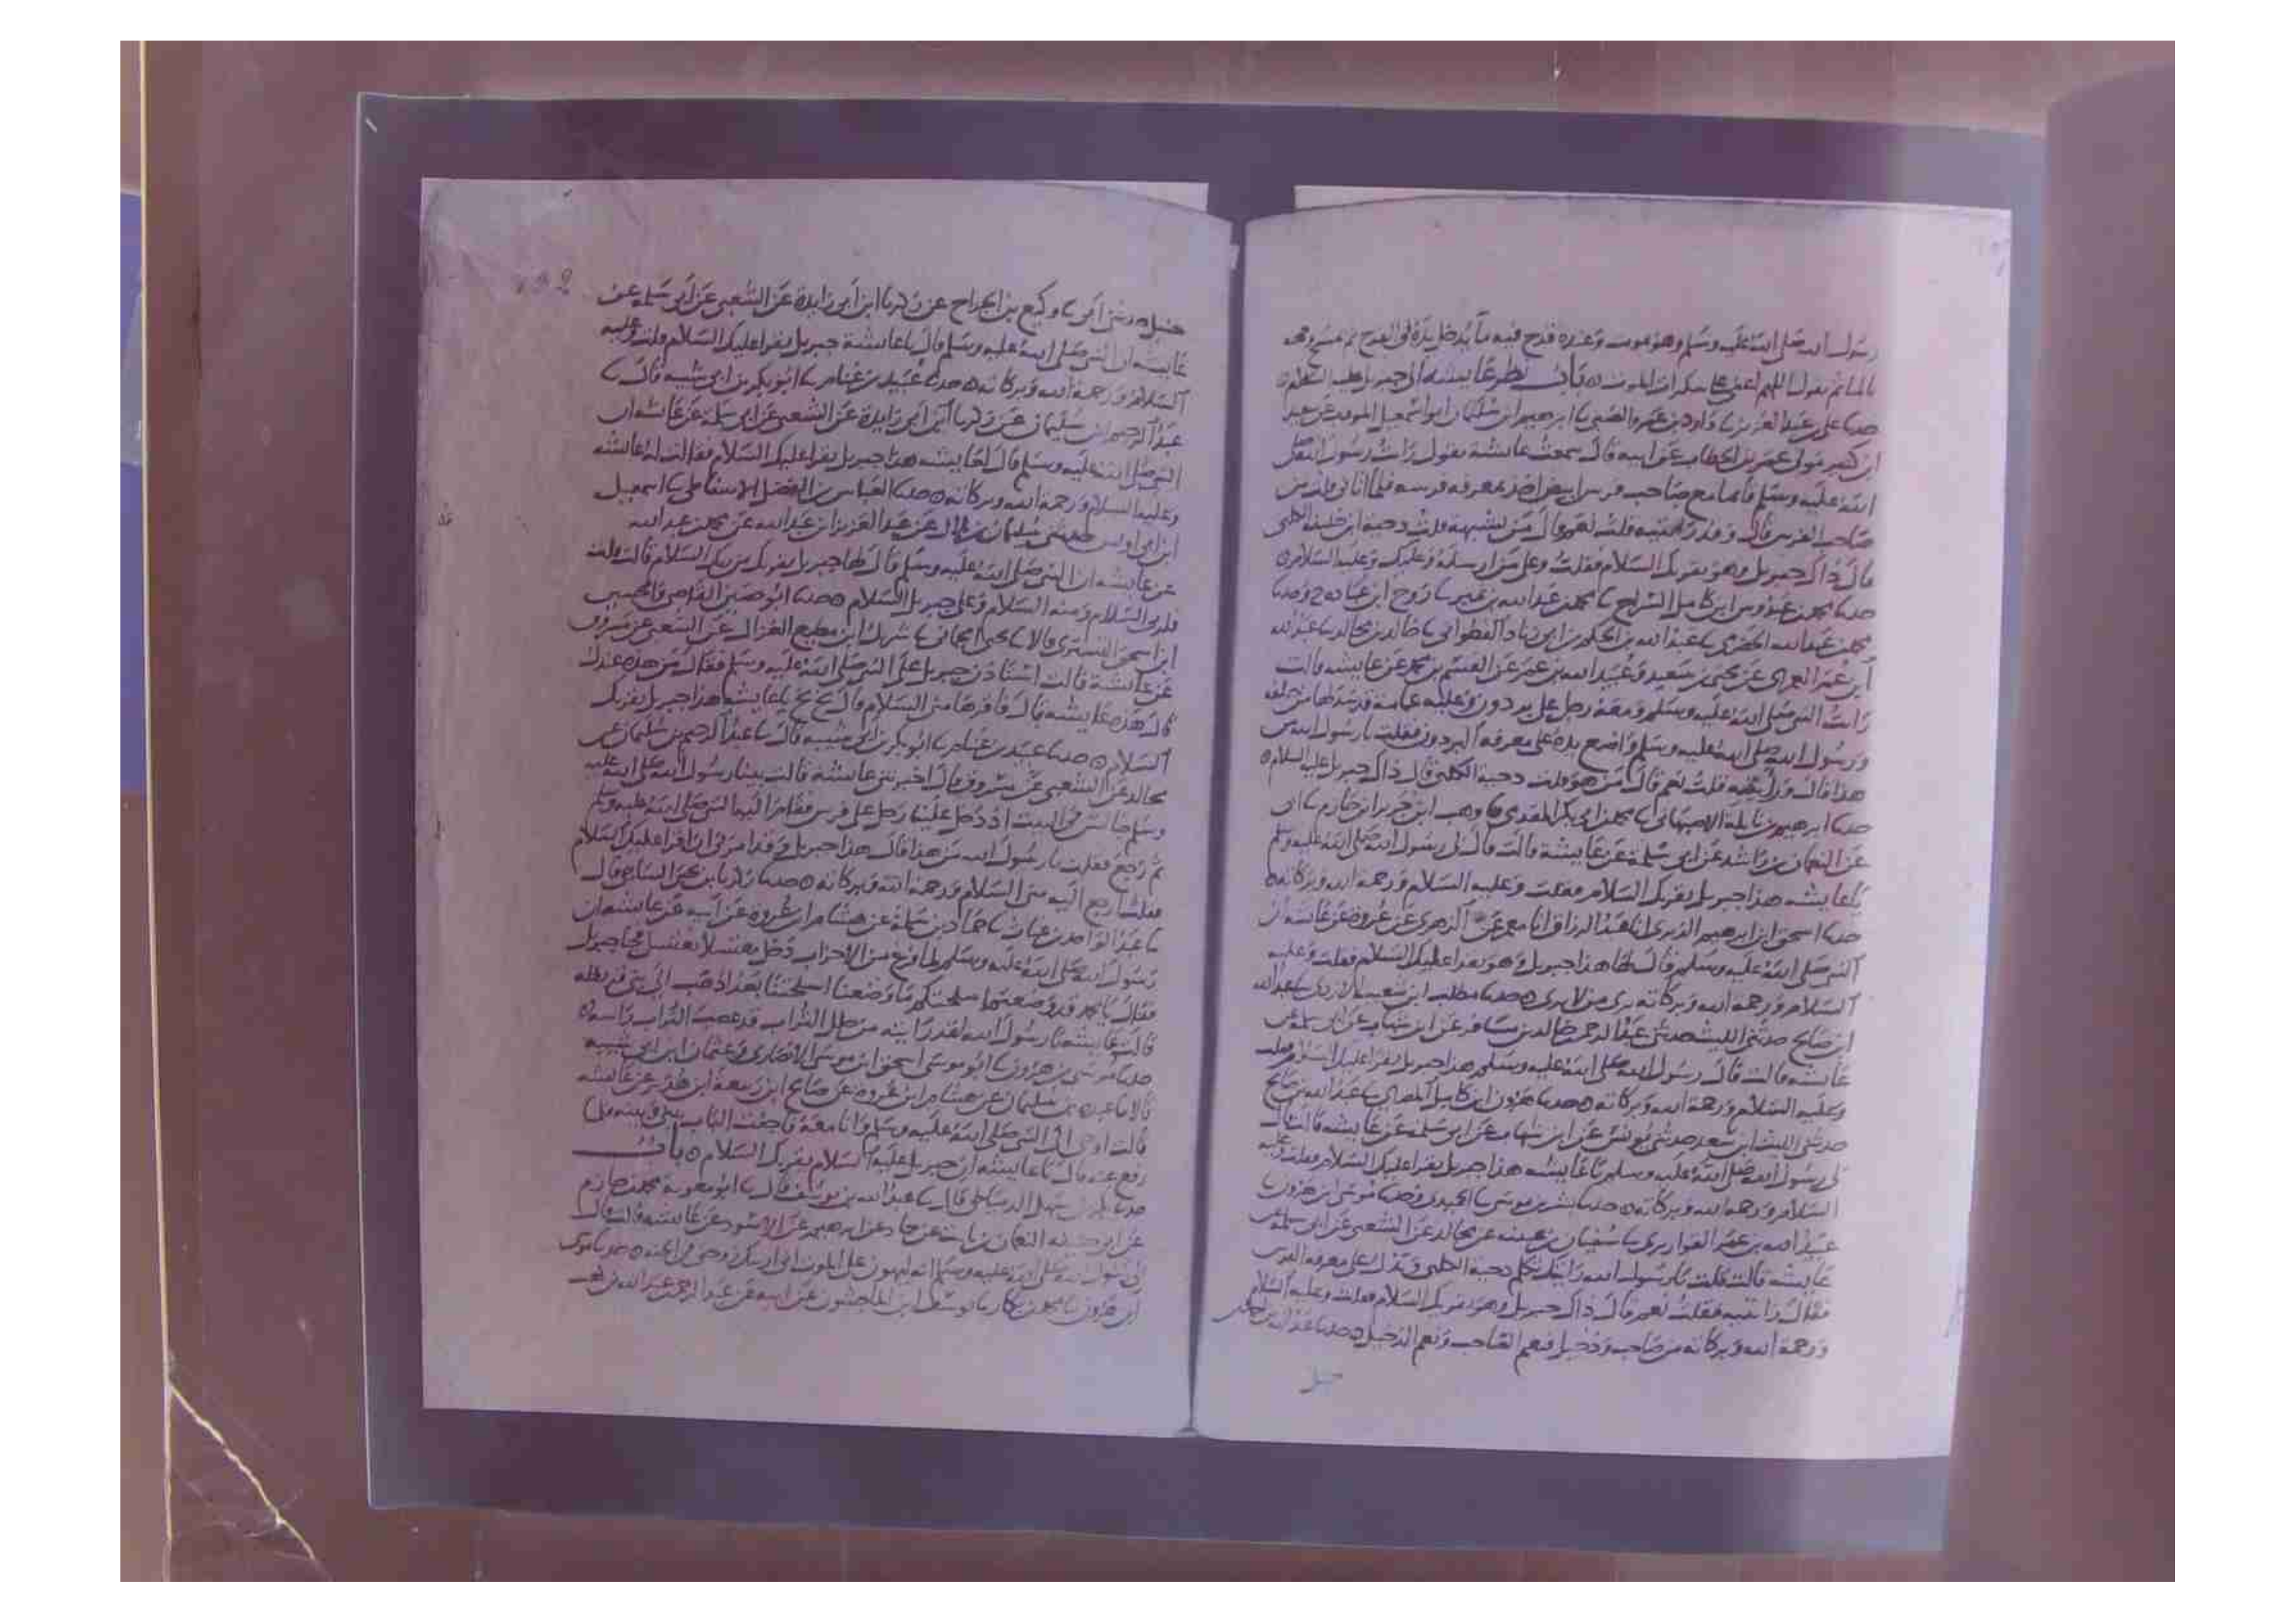 رسول الله صلى الله عليه وسلم وهو يموت وعنده قدح فيه ما يدخل يده في القدح ثم يمسح وجهه
بالما ثم يقول اللهم اعني على سكرات الموت ه باب نظر عايشه الى جبريل عليه السلام ه
حدثنا علي بن عبد العزيز نا داود بن عمرو الضبي نا ابرهيم ابن سليمان ابو اسمعيل المودب عن سعيد
ابن كثير مولى عمر بن الخطاب عن ابيه قال سمعت عايشة تقول رات رسول الله صلى
الله عليه وسلم قايما مع صاحب فرس ابيض اخذ بمعرفه فرسه فلما اتاني قلت من
صاحب الفرس قال وقد رايتيه قلت نعم قال من يشبهه قلت دحية ابن خليفه الكلبي
قال ذاك جبريل وهو يقريك السلام فقلت وعلى من ارسله وعليك وعليه السلام ه
حدثنا محمد بن عبدوس ابن كامل السراج نا محمد بن عبد الله بن نمير نا روح ابن عباده ح وحدثنا
محمد بن عبد الله الحضرمي نا عبد الله بن الحكم بن ابي زياد القطواني نا خالد بن مخالد نا عبد الله
ابن عمر العمري عن يحيى بن سعيد وعبيد الله بن عمر عن القسم بن محمد عن عايشه قالت
رات النبي صلى الله عليه وسلم ومعه رجل على بردون وعليه عمامة قد سدلها من خلفه
ورسول الله صلى الله عليه وسلم واضع يده على معرفة البردون فقلت يا رسول الله من
هذا قال ورايتيه قلت نعم قال من هو قلت دحية الكلبي قال ذاك جبريل عليه السلام ه
حدثنا ابرهيم بن نايلة الاصبهاني نا محمد بن ابي بكر المقدمي نا وهب ابن جرير ابن حازم نا ابي
عن النعمان بن راشد عن ابي سلمة عن عايشة قالت قال لي رسول الله صلى الله عليه وسلم
يا عايشه هذا جبريل يقريك السلام فقلت وعليه السلام ورحمة الله وبركاته ه
حدثنا اسحق ابن ابرهيم الدبري انا عبد الرزاق انا معمر عن الزهري عن عروة عن عايشه ان
النبي صلى الله عليه وسلم قال لها هذا جبريل وهو يقرا عليك السلام فقلت وعليه
السلام ورحمة الله وبركاته يرى من لا يرى ه حدثنا مطلب ابن شعيب الازدي نا عبد الله
ابن صالح حدثني الليث حدثني عبد الرحمن خالد بن مسافر عن ابن شهاب عن ابي سلمة عن
عايشه قالت قال رسول الله صلى الله عليه وسلم هذا جبريل يقرا عليك السلام فقلت
وعليه السلام ورحمة الله وبركاته ه حدثنا هرون ابن كامل المصري نا عبد الله بن صالح
حدثني الليث ابن سعد حدثني يونس عن ابن شهاب عن ابي سلمة عن عايشه قالت قال
لي رسول الله صلى الله عليه وسلم يا عايشه هذا جبريل يقرا عليك السلام فقلت وعليه
السلام ورحمة الله وبركاته ه حدثنا بشر بن موسى نا الحميدي وحدثنا موسى ابن هرون نا
عبيد الله بن عمر القواريري نا سفيان بن عيينه عن مجالد عن الشعبي عن ابي سلمة عن
عايشه قالت قلت يا رسول الله رايتك تكلم دحية الكلبي ويدك على معرفه الفرس
فقال رايتيه فقلت نعم قال ذاك جبريل وهو يقريك السلام فقلت وعليه السلام
ورحمة الله وبركاته من صاحب ودخيل فنعم الصاحب ونعم الدخيل ه حدثنا عبد الله بن احمد بن
حنبل
حنبل حدثني ابي نا وكيع بن الجراح عن زكريا ابن ابي زايدة عن الشعبي عن ابي سلمة عن
عايشه ان النبي صلى الله عليه وسلم قال يا عايشة جبريل يقرا عليك السلام قلت وعليه
السلام ورحمة الله وبركاته ه حدثنا عبيد بن غنام نا ابو بكر بن ابي شيبه قال نا
عبد الرحيم ابن سليمان عن زكريا ابن ابي زايدة عن الشعبي عن ابي سلمة عن عايشه ان
النبي صلى الله عليه وسلم قال لعايشه هذا جبريل يقرا عليك السلام فقالت له عايشه
وعليه السلام ورحمة الله وبركاته ه حدثنا العباس بن الفضل الاسفاطي نا اسمعيل
ابن ابي اويس حدثني سليمان بن بلال عن عبد العزيز ابن عبد الله عن محمد بن عبد الله
عن عايشه ان النبي صلى الله عليه وسلم قال لها جبريل يقريك من ربك السلام قالت قلت
فلربي السلام ومنه السلام وعلى جبريل السلام ه حدثنا ابو حصين القاضي والحسين
ابن اسحق التستري قالا نا يحيى الحماني نا شريك ابن مطيع الغزال عن الشعبي عن مسروق
عن عايشة قالت استاذن جبريل على النبي صلى الله عليه وسلم فقال من هذه عندك
قال هذه عايشه قال فاقرها مني السلام قال بخ بخ يا عايشه هذا جبريل يقريك
السلام ه حدثنا عبيد بن غنام نا ابو بكر بن ابي شيبه قال نا عبد الرحيم بن سليمان عن
مجالد عن الشعبي عن مسروق قال اخبرتني عايشة قالت بينا رسول الله صلى الله عليه
وسلم جالس في البيت اذ دخل علينا رجل على فرس فقام اليها النبي صلى الله عليه وسلم
ثم رجع فقلت يا رسول الله من هذا قال هذا جبريل وقد امرني ان اقرا عليك السلام
فقلت ارجع اليه مني السلام ورحمة الله وبركاته ه حدثنا زكريا بن يحيى الساجي قال
نا عبد الواحد بن غياث نا حماد بن سلمة عن هشام ابن عروة عن ابيه عن عايشه ان
رسول الله صلى الله عليه وسلم لما فرغ من الاحزاب دخل مغتسلا يغتسل فجا جبريل
فقال يا محمد قد وضعتم اسلحتكم ما وضعنا اسلحتنا بعد اذهب الى بني قريظه
قالت عايشه يا رسول الله لقد رايته من خلل الباب قد عصب التراب راسه ه
حدثنا موسى بن هرون نا ابو موسى اسحق ابن موسى الانصاري وعثمان ابن ابي شيبه
قالا نا عبده بن سليمان عن هشام ابن عروة عن صالح ابن ربيعة ابن هدير عن عايشه
قالت اوحي الى النبي صلى الله عليه وسلم وانا معه فاجفت الباب بيني وبينه فلما
رفع عنه قال يا عايشه ان جبريل عليه السلام يقريك السلام ه باب
حدثنا بكر بن سهل الدمياطي قال نا عبد الله بن يوسف قال نا ابو معوية محمد بن حازم
عن ابي حنيفه النعمان بن ثابت عن حماد عن ابرهيم عن الاسود عن عايشه قالت قال
لي رسول الله صلى الله عليه وسلم انه ليهون علي الموت اني اريتك زوجتي في الجنه ه حدثنا موسى
ابن هرون نا محمد بن بكار نا يوسف ابن الماجشون عن ابيه عن عبد الرحمن